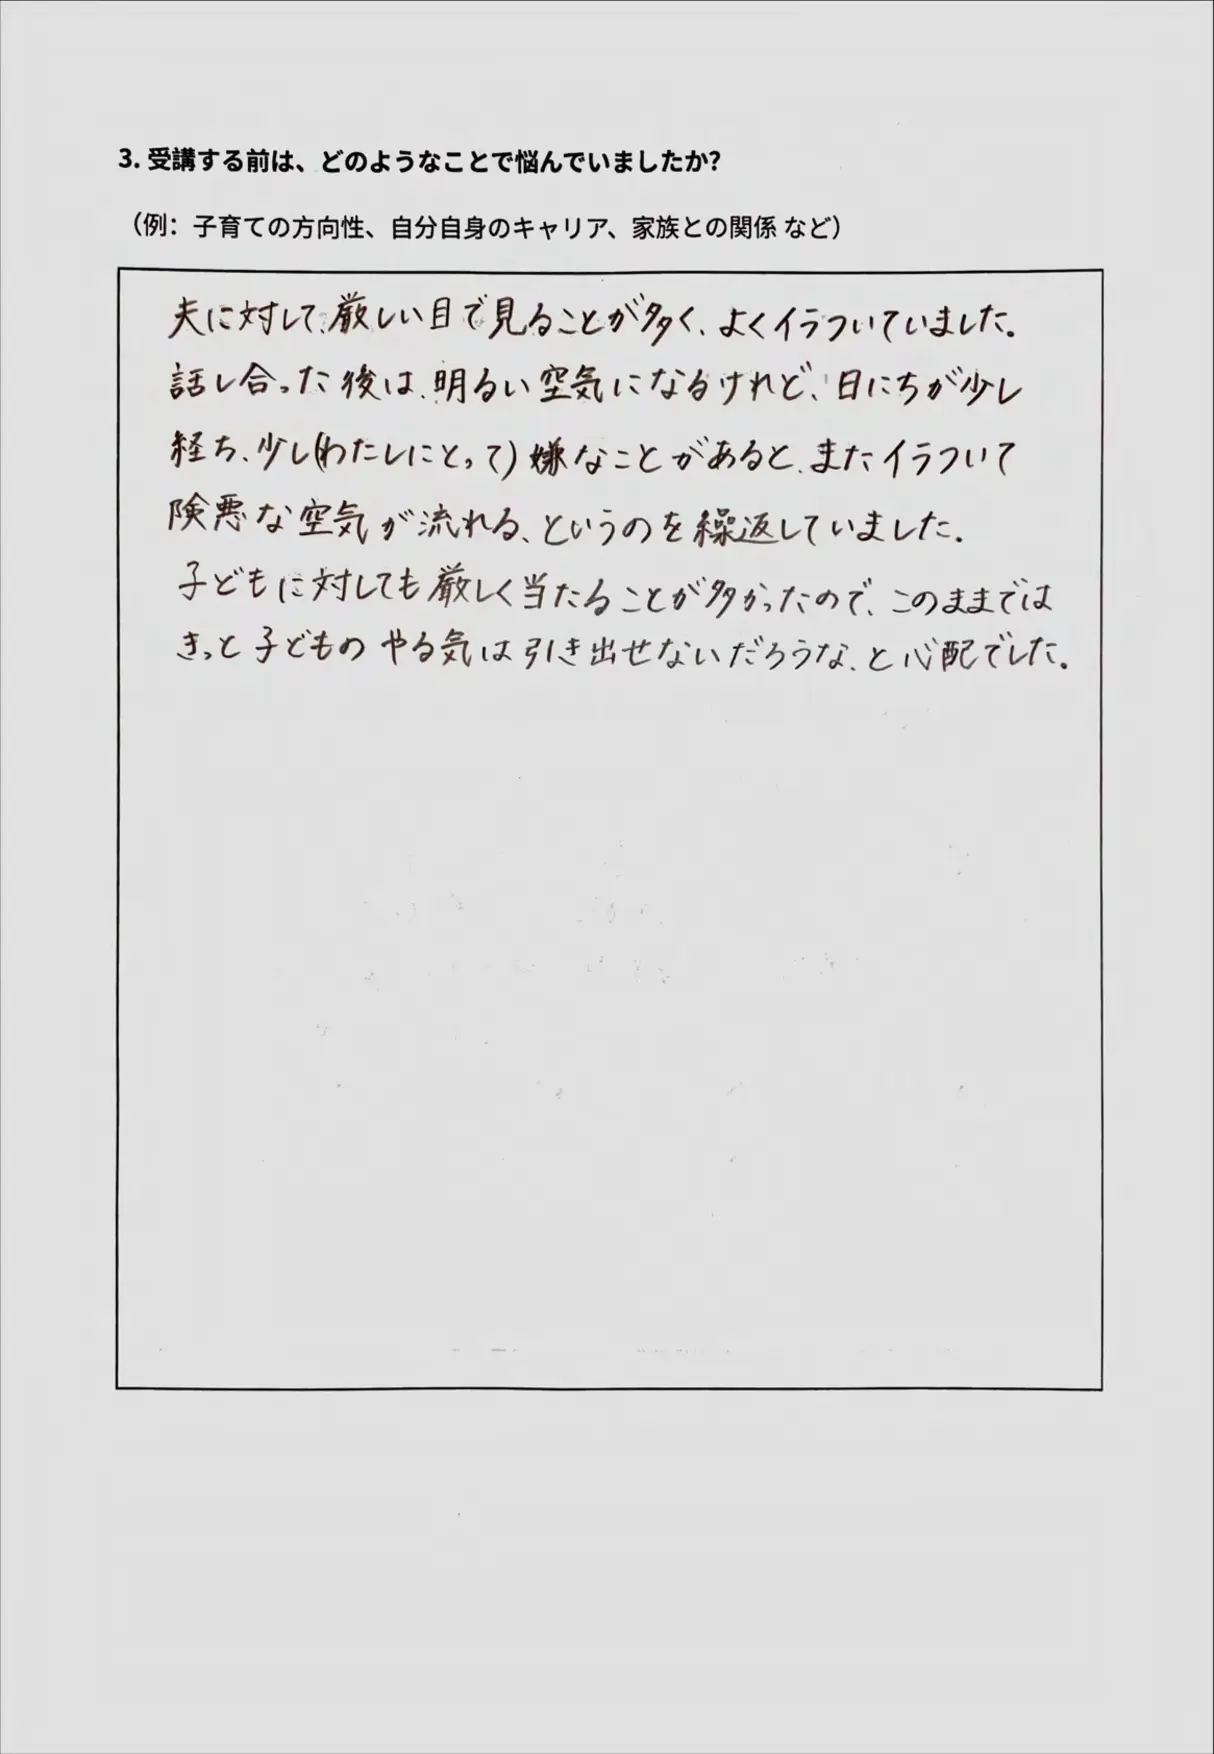 3. 受講する前は、どのようなことで悩んでいましたか?
（例：子育ての方向性、自分自身のキャリア、家族との関係 など）
夫に対して、厳しい目で見ることが多く、よくイラついていました。
話し合った後は、明るい空気になるけれど、日にちが少し
経ち、少し(わたしにとって)嫌なことがあると、またイラついて
険悪な空気が流れる、というのを繰返していました。
子どもに対しても厳しく当たることが多かったので、このままでは
きっと子どものやる気は引き出せないだろうな、と心配でした。